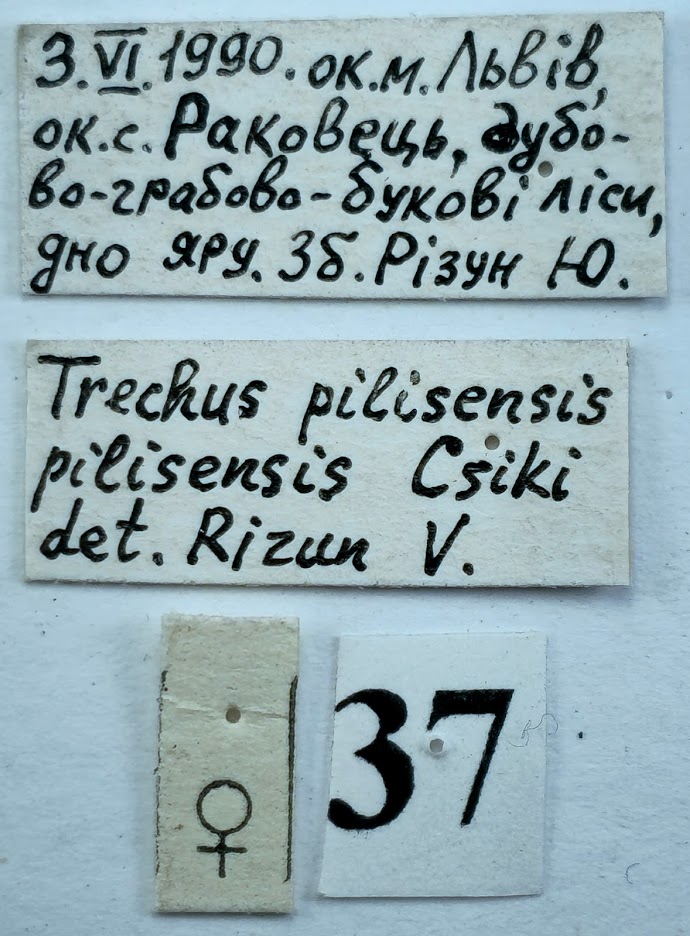 3.VI.1990. ок.м. Львів,
ок.с. Раковець, дубо-
во-грабово-букові ліси,
дно яру. Зб. Різун Ю.
Trechus pilisensis
pilisensis Csiki
det. Rizun V.
♀
37